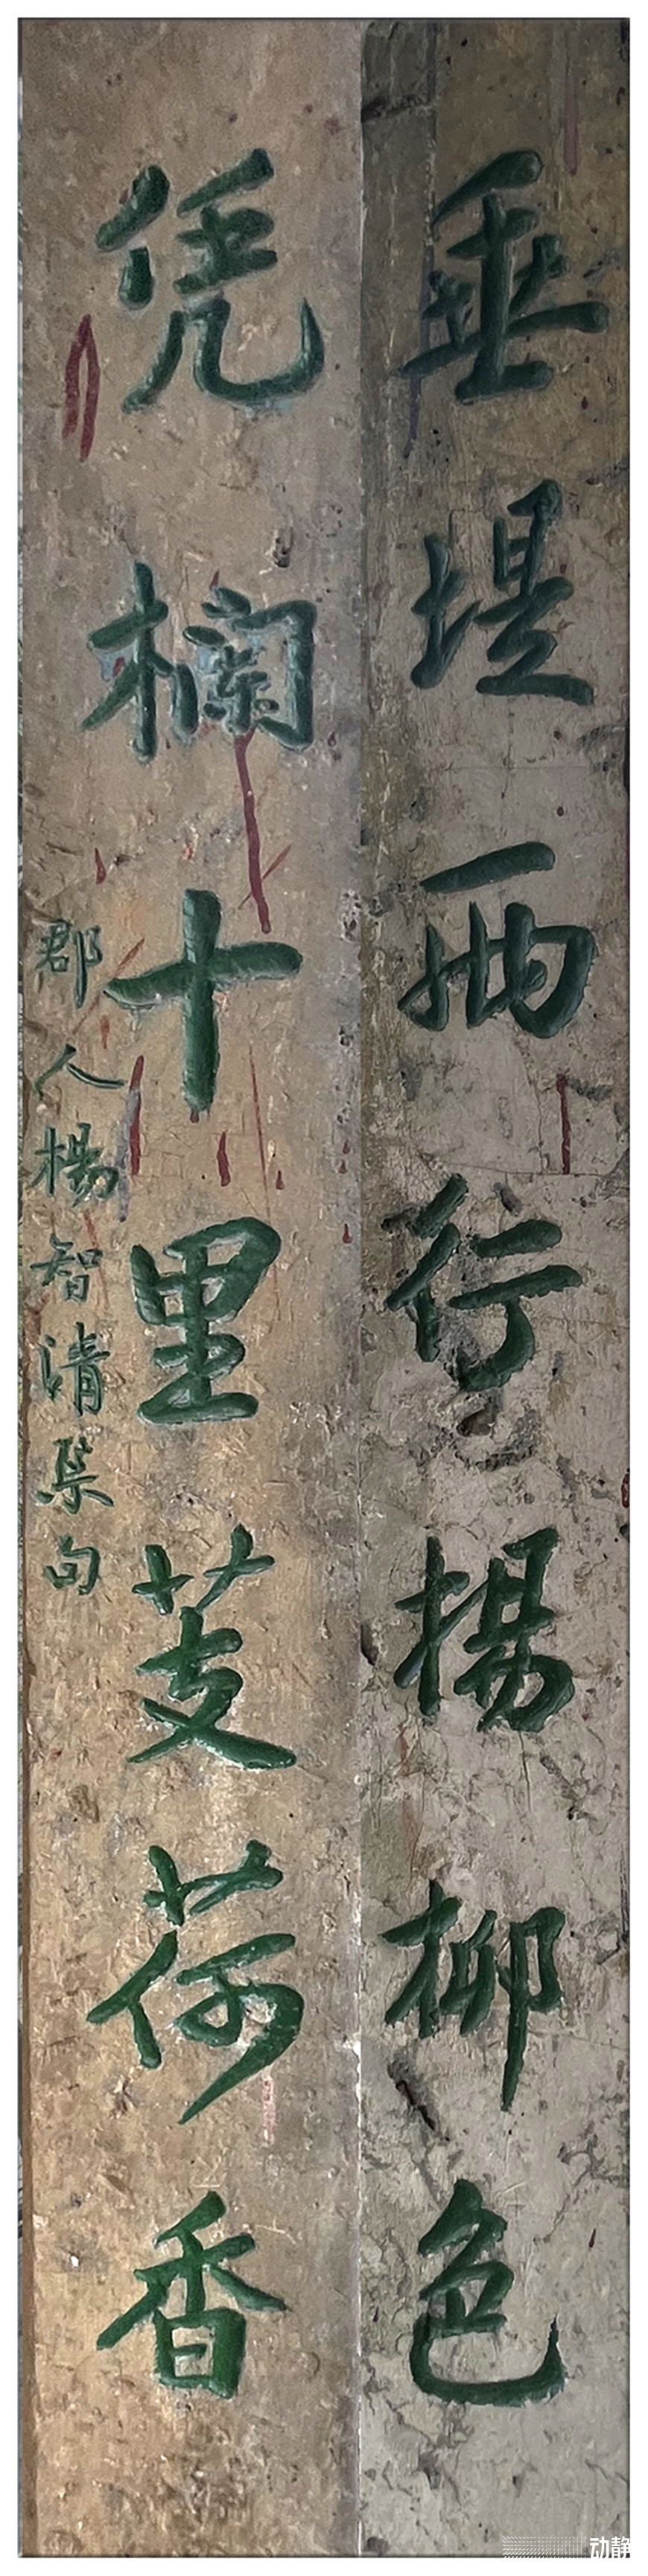 垂堤两行楊柳色
凭欄十里芰荷香
郡人楊智清集句
动静